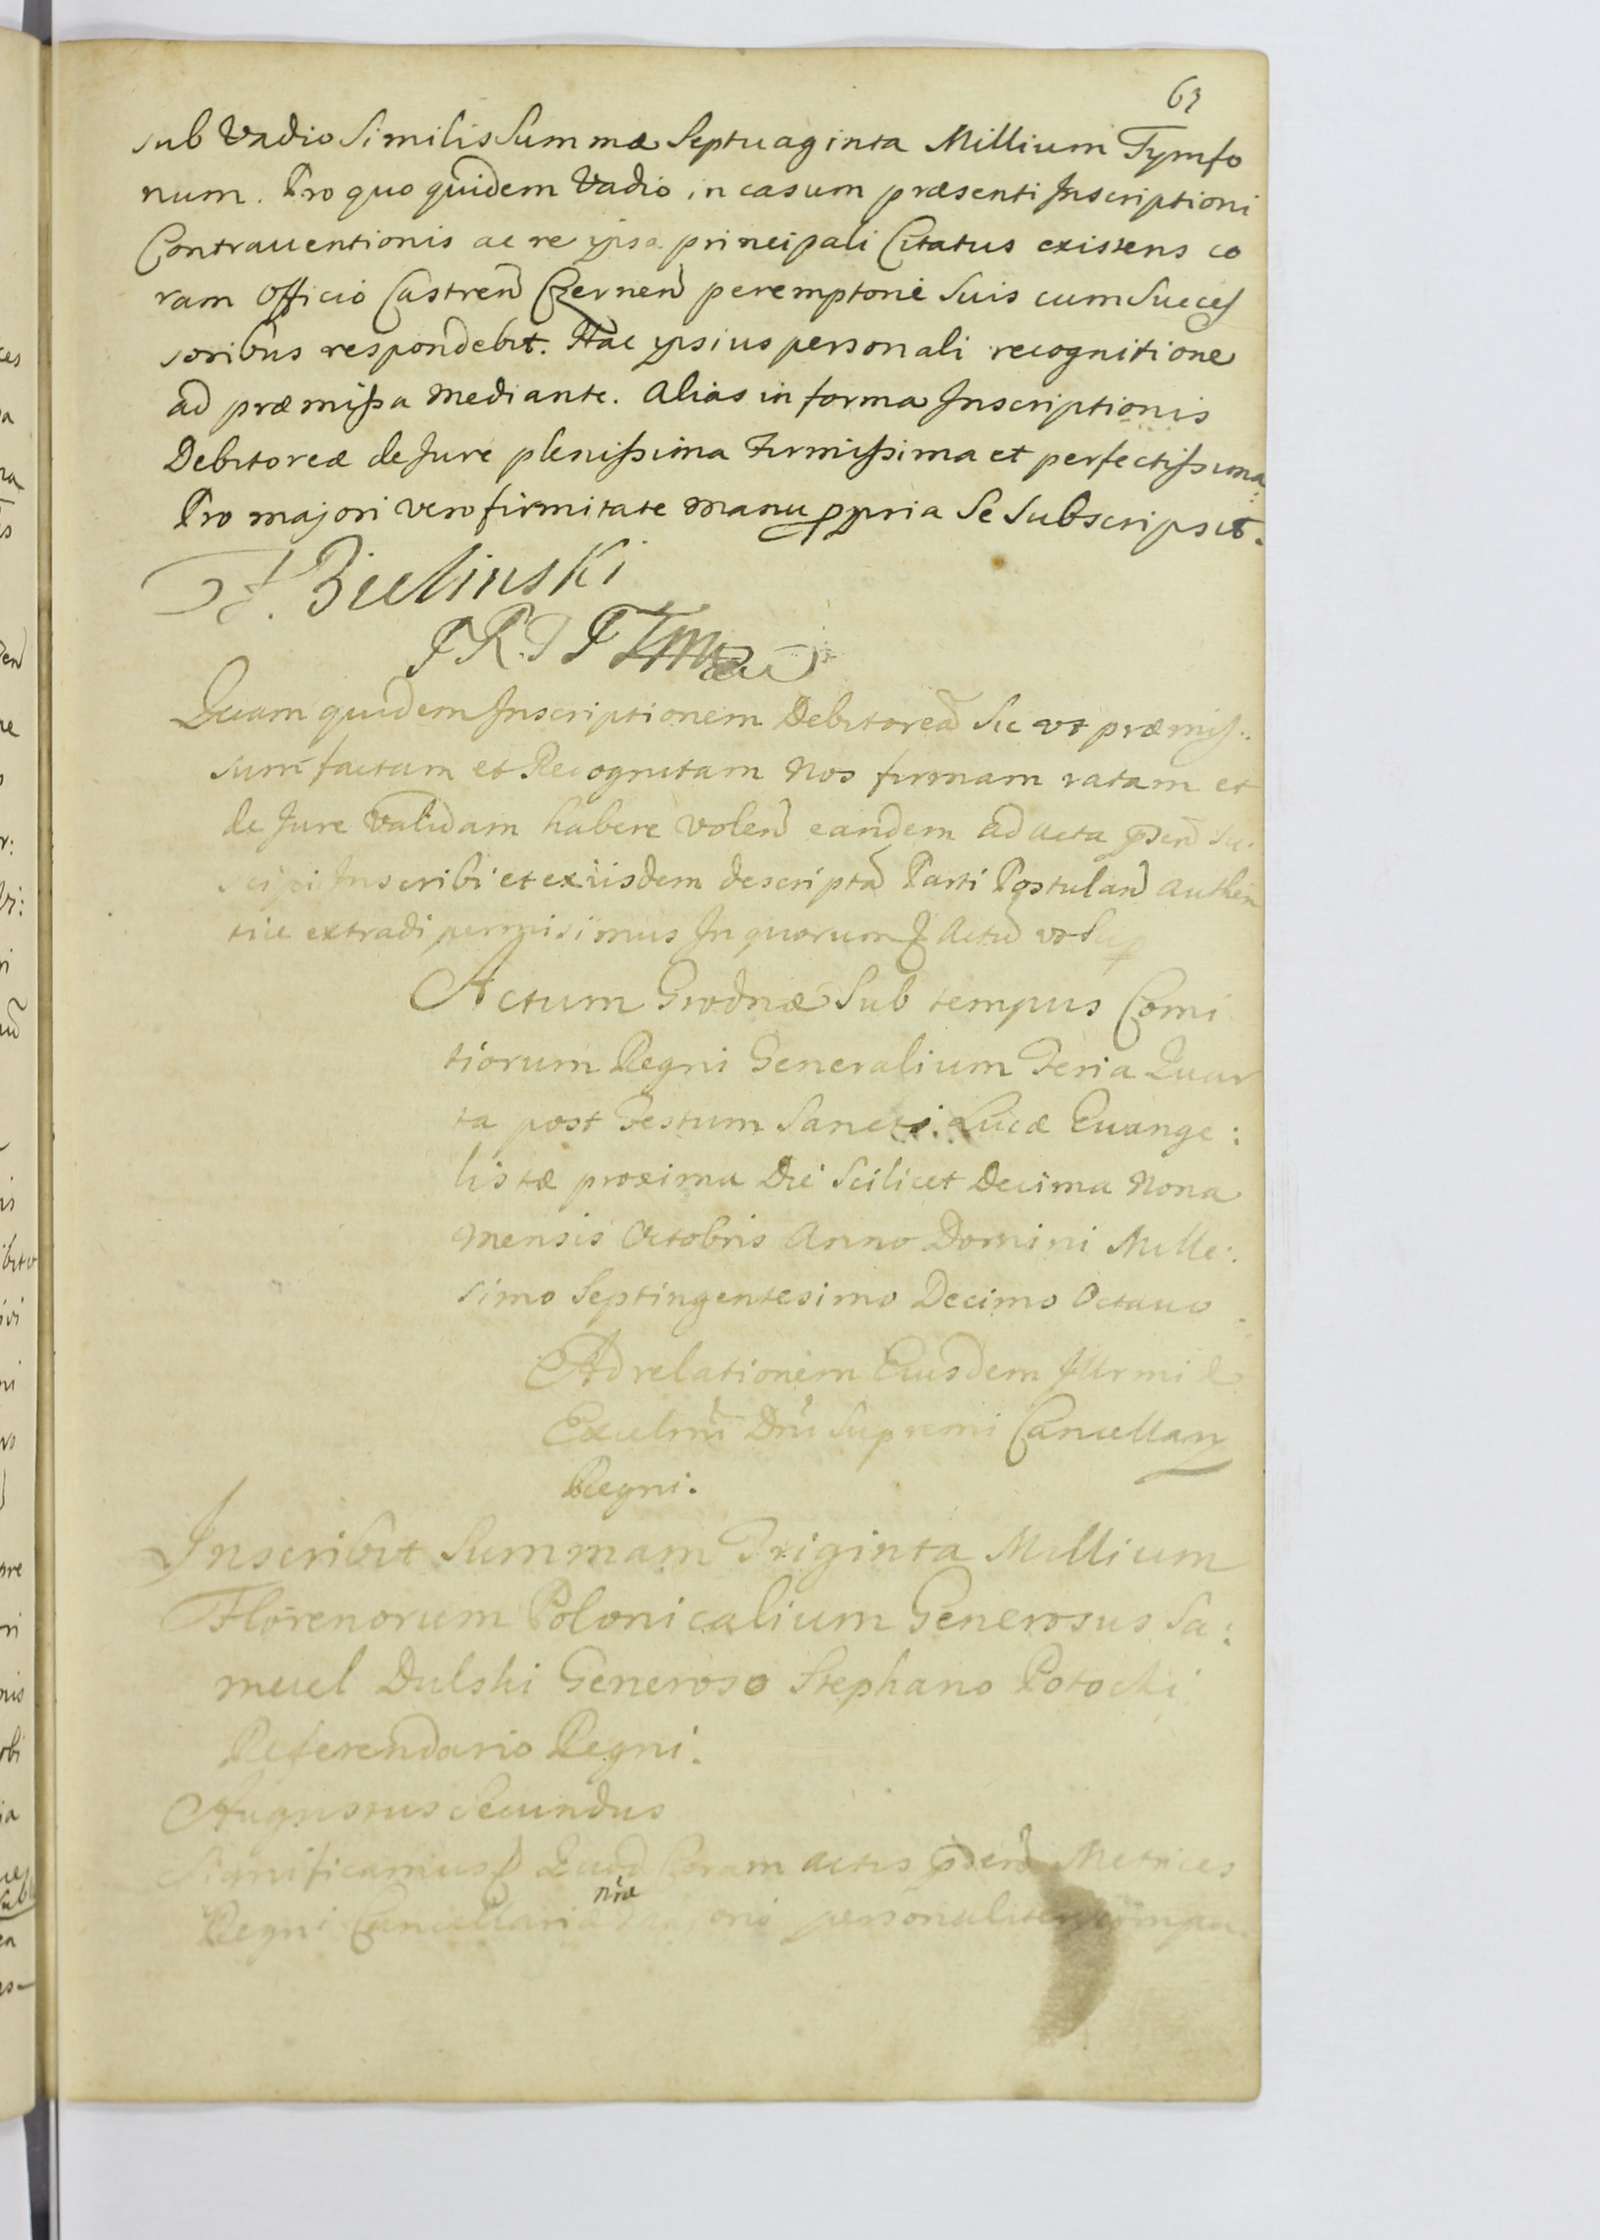 63
sub Vadio similis summæ septuaginta Millium Tymfo
num. Pro quo quidem Vadio in casum præsenti Inscriptioni
Contrauentionis ac re ipsa principali Citatus existens co
ram Officio Castren̄ Czernen̄ peremptorie suis cum succes
soribus respondebit. Hac ipsius personali recognitione
ad præmissa mediante. Alias in forma Inscriptionis
Debitoreæ de Jure plenissima Firmissima et perfectissima
Pro majori vero firmitate manu ppria se subscripsit.
Bielinski
Quam quidem Inscriptionem Debitoreā sic vt præmis:
sum factam et Recognitam Nos firmam ratam et
de Jure validam habere volen̄ eandem ad acta pn̄sen̄ su:
scipi Inscribi et ex iisdem descriptā Parti Postulan̄ Authen
tice extradi permisimus In quorum Actū vt Sup
Actum Grodnæ Sub tempus Comi
tiorum Regni Generalium Feria Quar
ta post Festum Sancti Lucæ Euange:
listæ proxima Die scilicet Decima Nona
mensis Octobris Anno Domini Mille:
simo Septingentesimo Decimo Octauo
Ad relationem Eiusdem Illrmi &
Excelmi Dni Supremi Cancellarij
Regni.
Inscribit Summam Triginta Millium
Florenorum Polonicalium Generosus Sa:
muel Dulski Generoso Stephano Potocki
Referendario Regni.
Augustus Secundus
Significamus Quod Coram actis pn̄sen̄ Metrices
nræ
Regni Cancellariæ Majoris personaliter compa